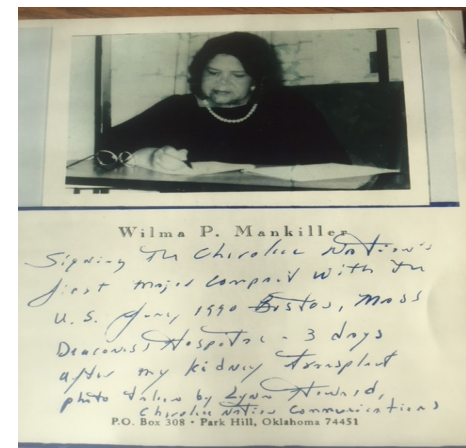 Wilma P. Mankiller
Signing The Cherokee Nation's
first major compact with the
U.S. June, 1990 Boston, Mass
Deaconess Hospital - 3 days
after my kidney transplant
photo taken by Lynn Howard,
Cherokee Nation Communications
P.O. Box 308 • Park Hill, Oklahoma 74451